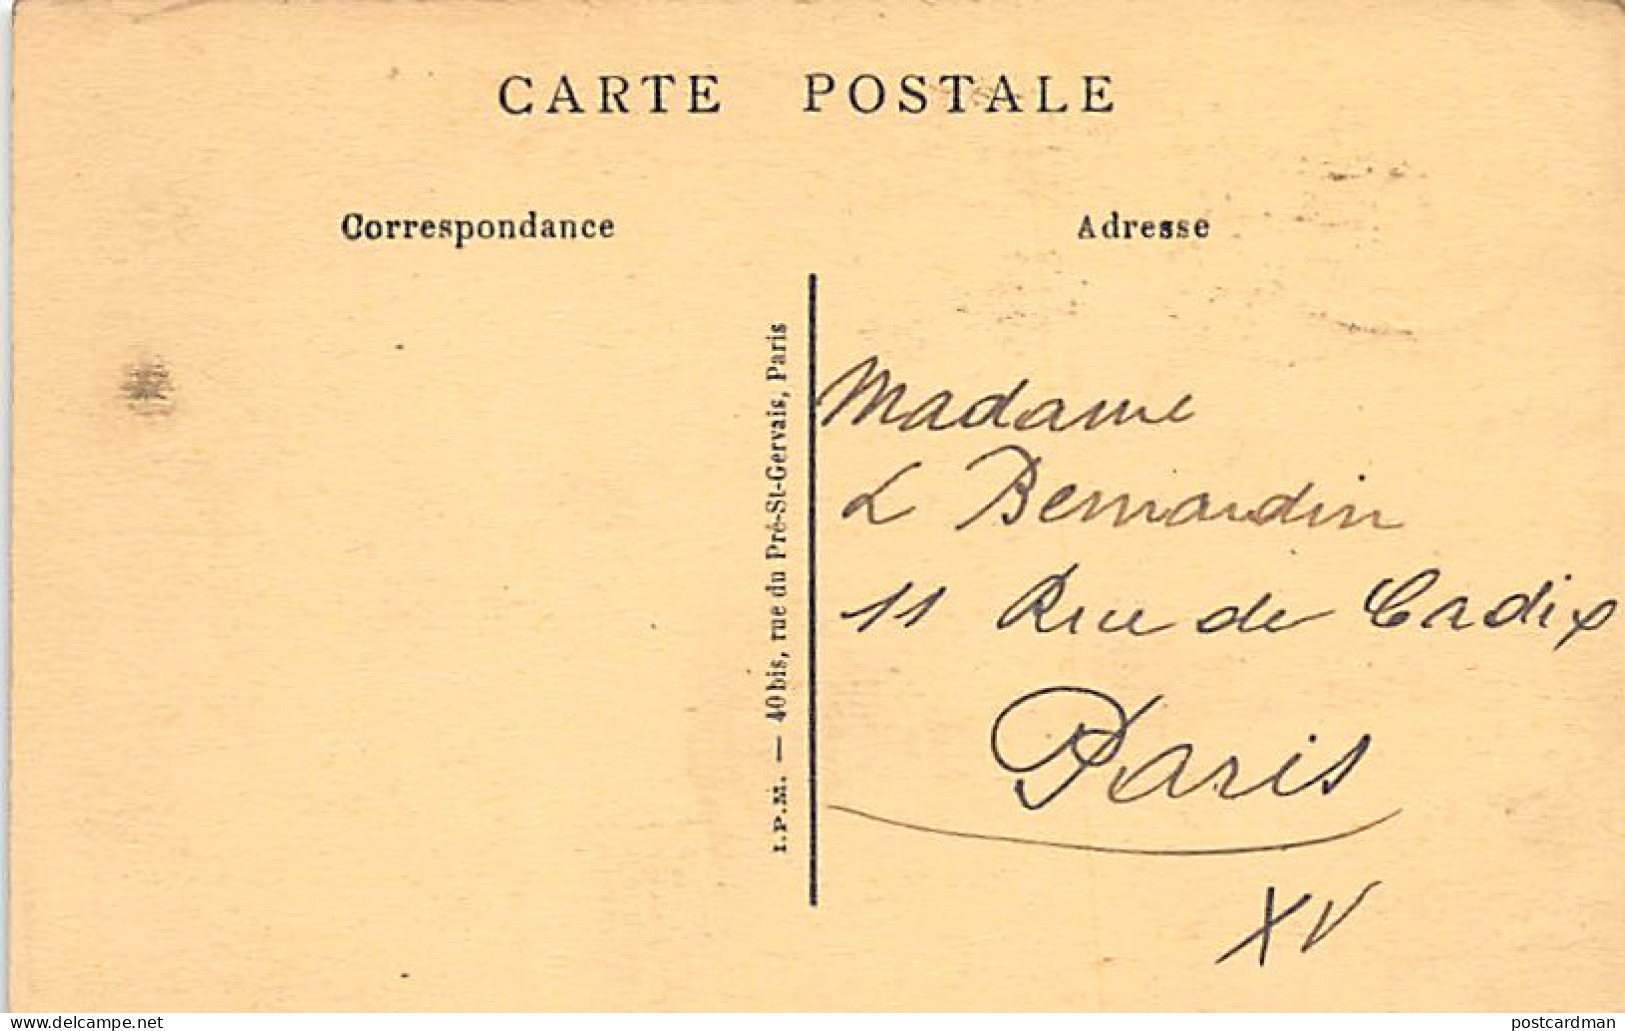 CARTE POSTALE
Correspondance
Adresse
I.P.M. — 40 bis, rue du Pré-St-Gervais, Paris
Madame
L Bernardin
11 Rue de Cadix
Paris
XV
www.delcampe.net
postcardman